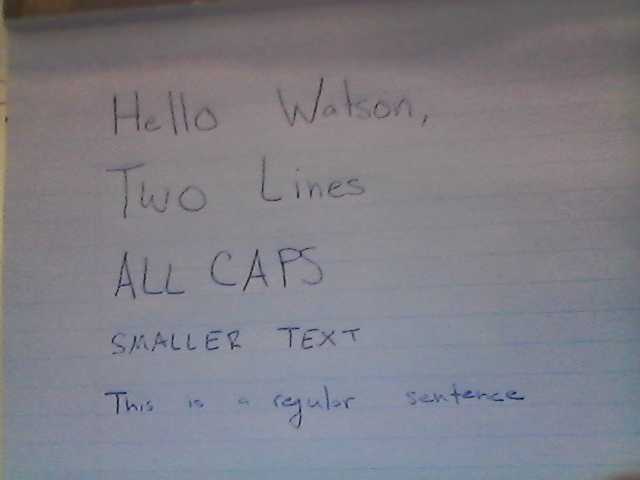 Hello Watson,
Two Lines
ALL CAPS
SMALLER TEXT
This is a regular sentence